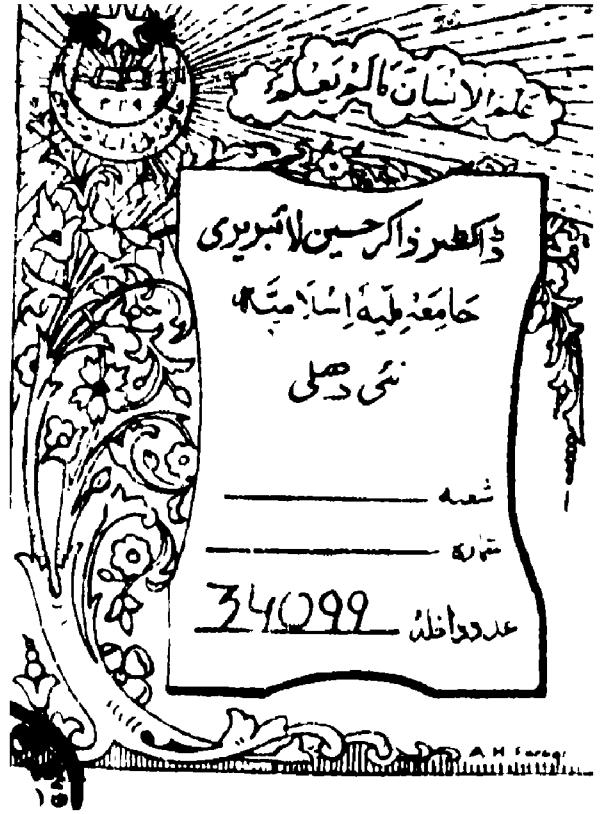 علم الانسان مالم يعلم
ڈاکٹر ذاکر حسین لائبریری
جَامِعَہ مِلّیہ اِسْلَامِیَّہ
نئی دھلی
شعبہ
شمارہ
عدد داخلہ 34099
A H Faruqi